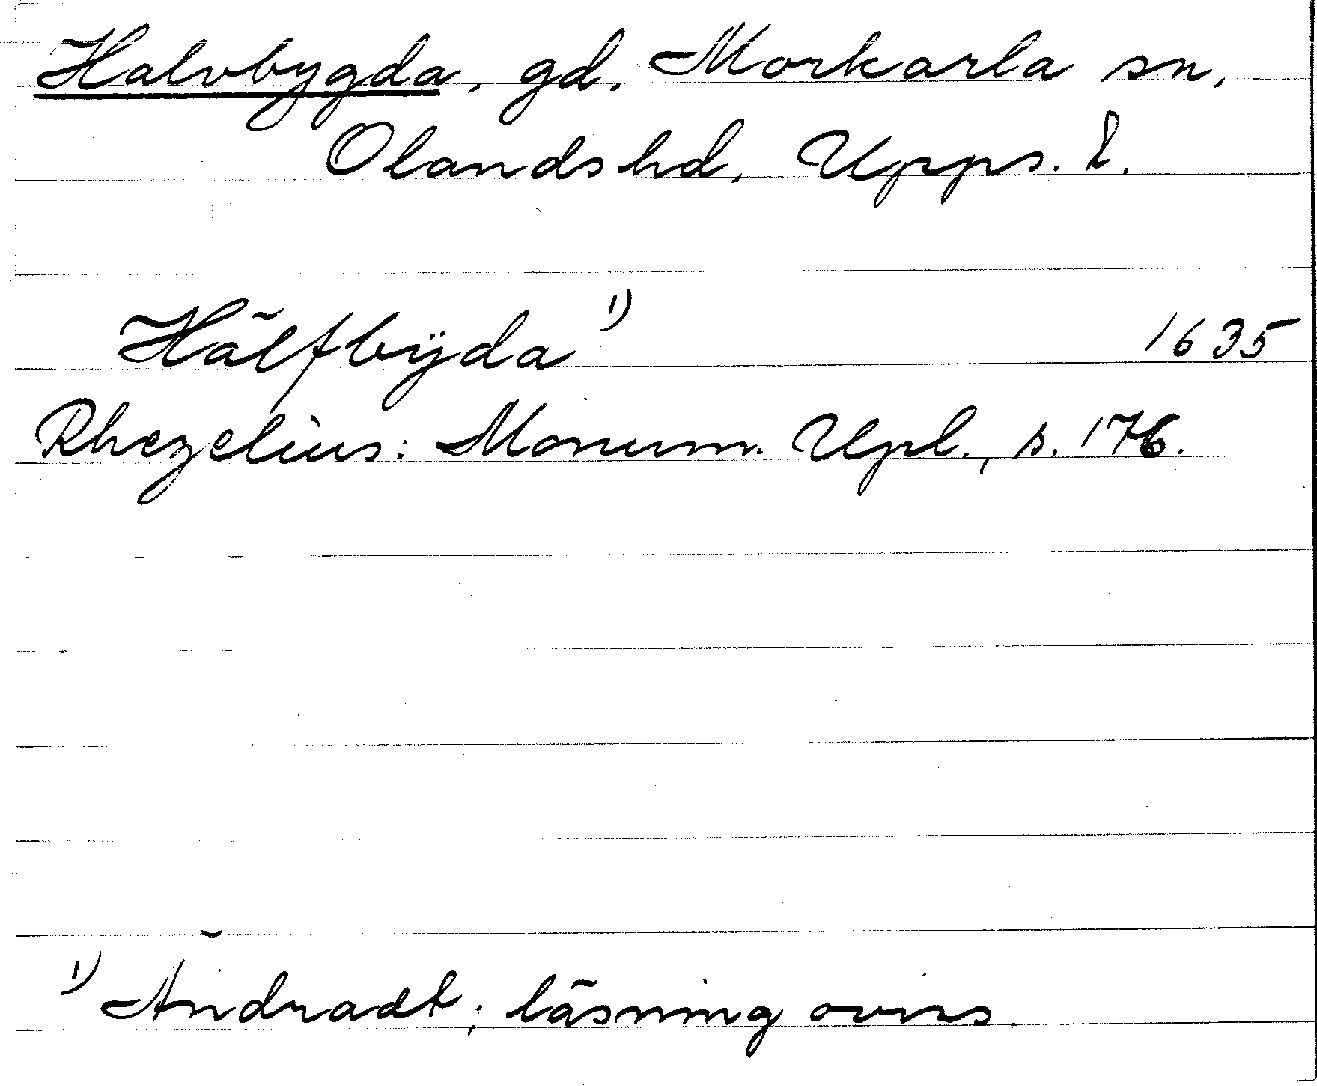 Halvbygda, gd, Morkarla sn,
Olands hd, Upps. l.
Hälfbÿda 1) 1635
Rhezelius: Monum. Upl., s. 176.
1) Ändradt; läsning oviss.